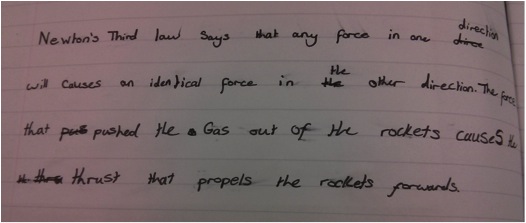 Newton's Third law says that any force in one direction
will causes an identical force in the other direction. The force
that pushed the Gas out of the rockets causes the
thrust that propels the rockets forwards.